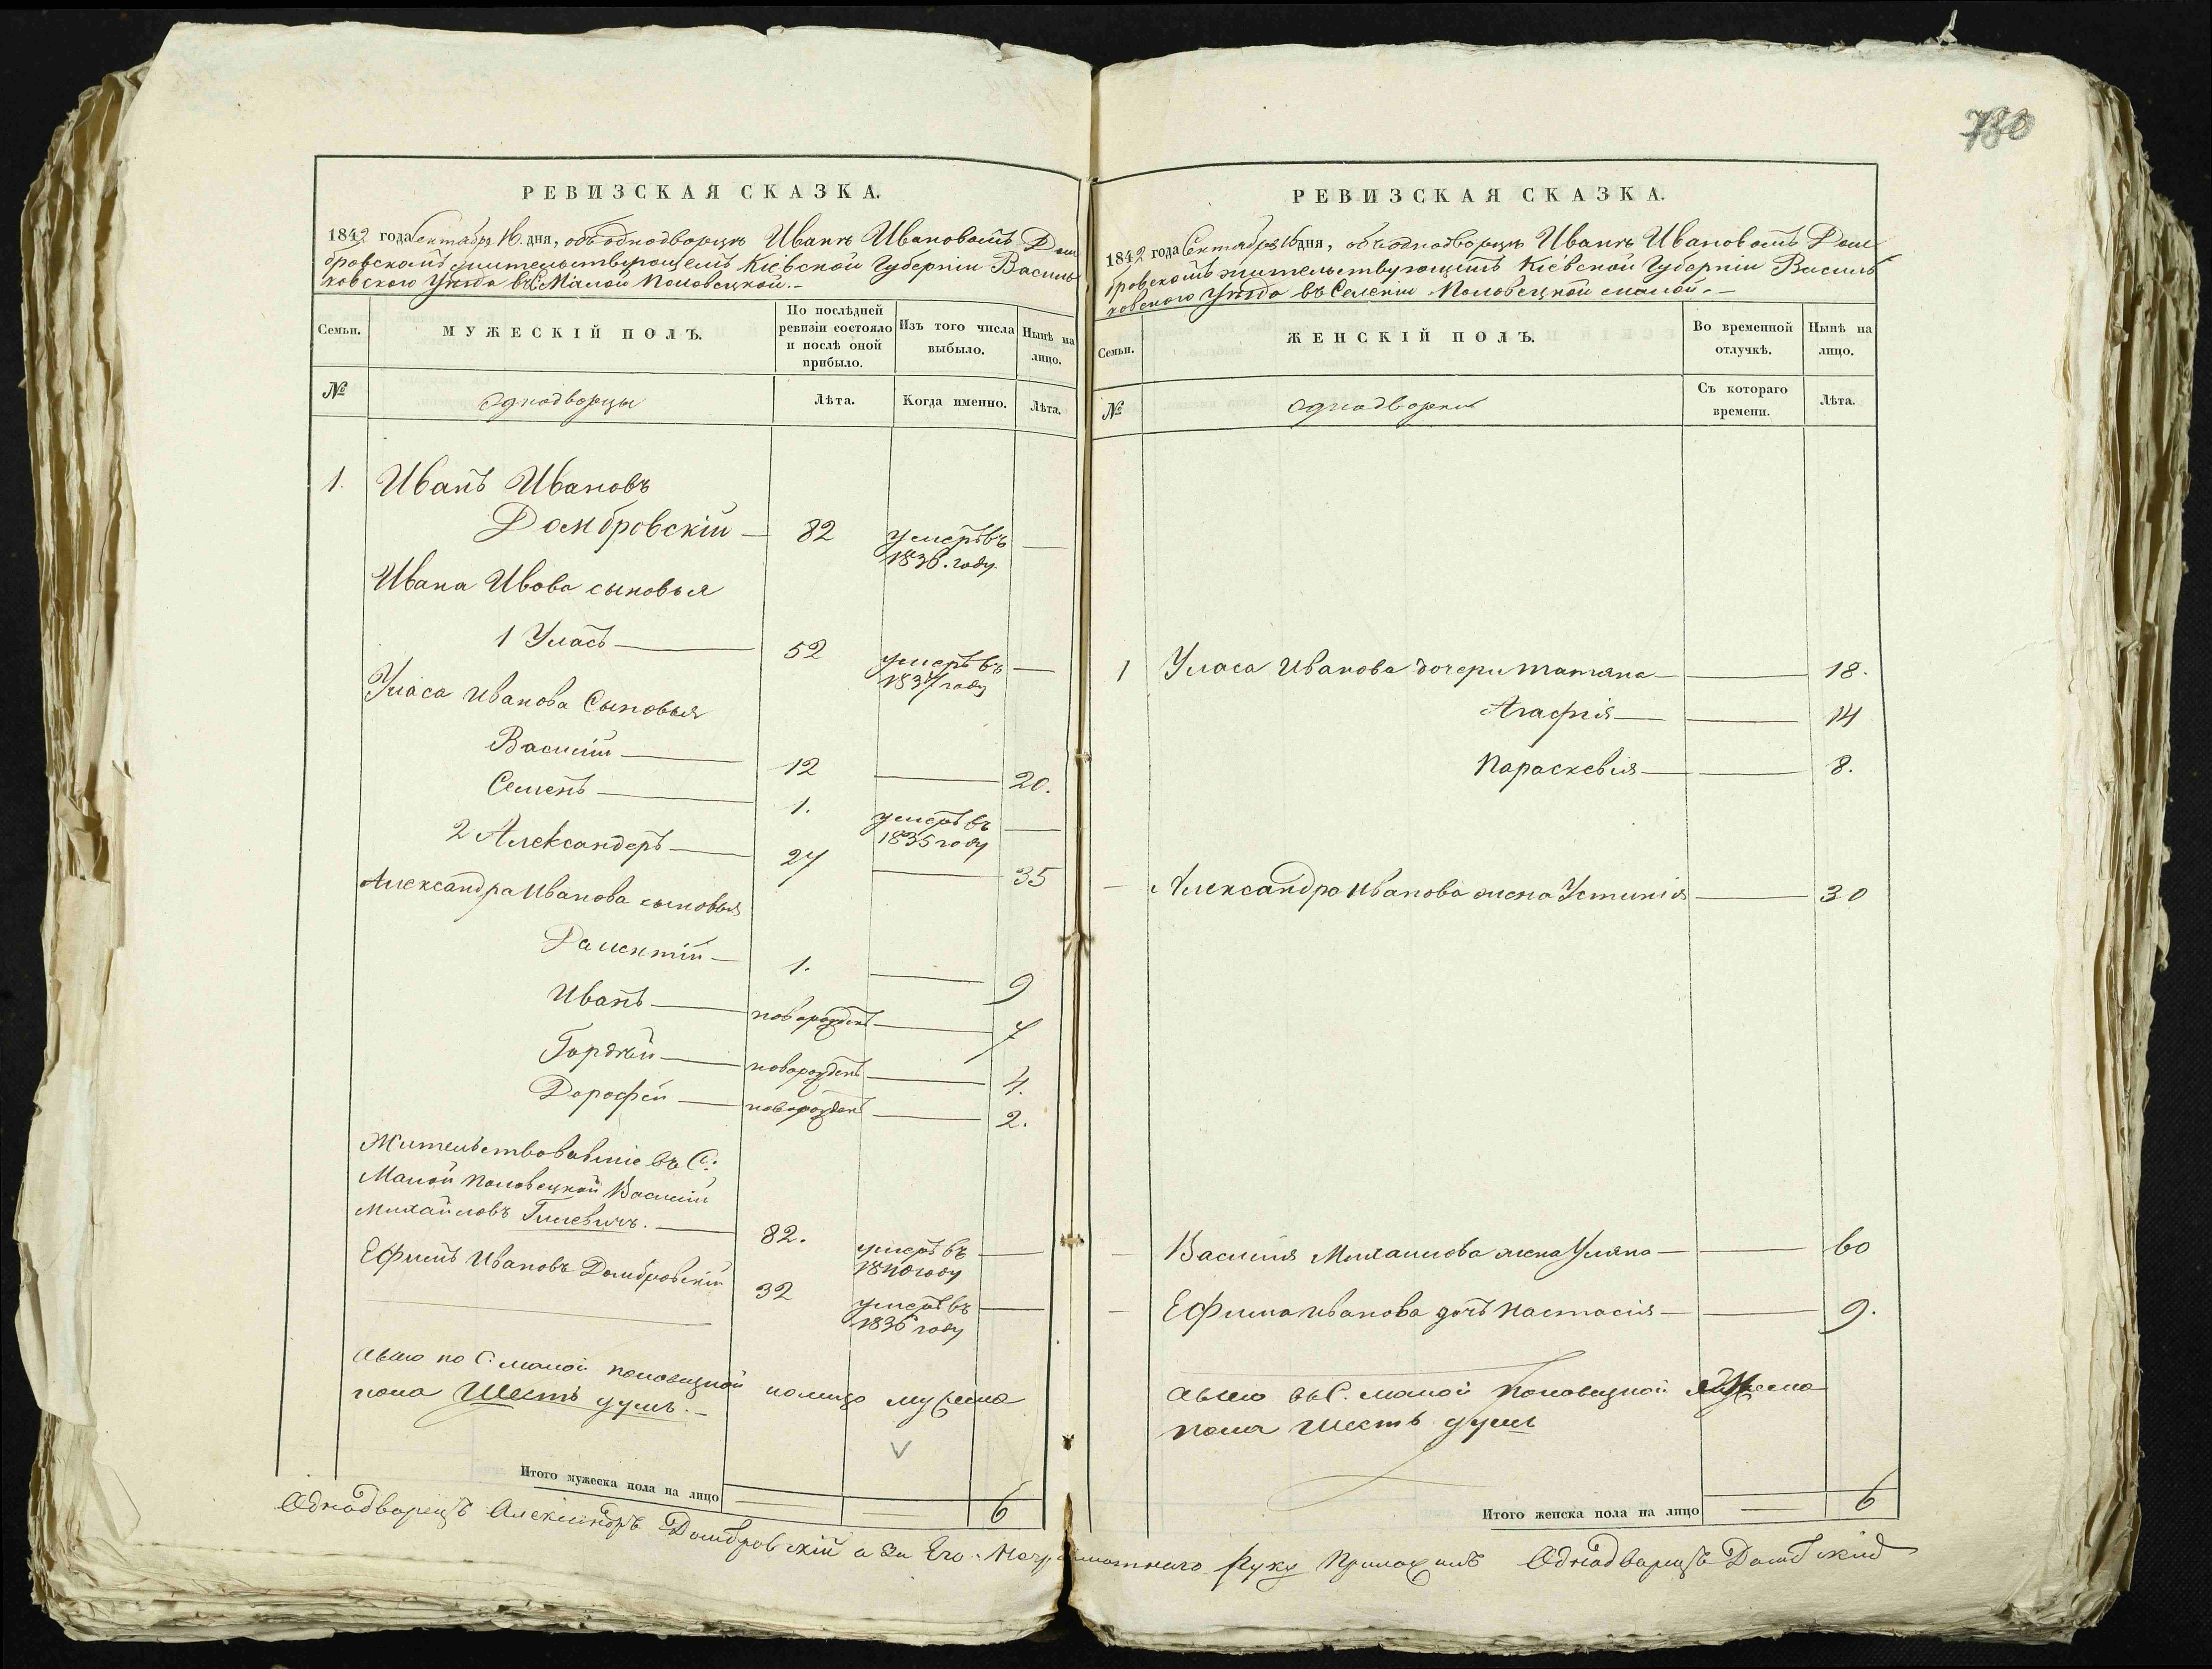 780
РЕВИЗСКАЯ СКАЗКА.
1842 года Сентября 16 дня, объ однодворцѣ Иванѣ Ивановѣ Дом
бровскомъ жительствующемъ Кіевской Губерніи Василь
ковского Уѣзда въ С. Малой Половецкой.-
Семьи.
МУЖЕСКІЙ ПОЛЪ.
По послѣдней ревизіи состояло и послѣ оной прибыло.
Изъ того числа выбыло.
Нынѣ на лицо.
№
Однодворцы
Лѣта.
Когда именно.
Лѣта.
1. Иванъ Ивановъ
Домбровскій — 82 умеръ въ 1836. году —
Ивана Ивова сыновья
1 Уласъ — 52 умеръ въ 1837 году —
Уласа Иванова Сыновья
Василій — 12 — 20.
Семенъ — 1. умеръ въ 1835 году —
2 Александеръ — 27 — 35
Александра Иванова сыновья
1. — 9
Иванъ — новорожденъ — 7
Гордѣй — новорожденъ — 4.
Дорофей — новорожденъ — 2.
Жительствовавшіе въ С:
Малой Половецкой Василій
Михайловъ — 82. умеръ въ 1840 году —
Ефимъ Ивановъ Домбровскій 32 умеръ въ 1836 году —
Авсего по С. малой половецкой налицо мужеска
пола Шесть душъ.-
Итого мужеска пола на лицо — — 6
РЕВИЗСКАЯ СКАЗКА.
1842 года Сентября 16 дня, объ однодворцѣ Иванѣ Ивановѣ Дом
бровскомъ жительствующимъ Кіевской Губерніи Василь
ковского Уѣзда въ Селеніи Половецкой малой.-
Семьи.
ЖЕНСКІЙ ПОЛЪ.
Во временной отлучкѣ.
Нынѣ на лицо.
№
Однодворки
Съ котораго времени.
Лѣта.
1 Уласа Иванова дочери Татяна — — 18.
Агафія — — 14
Параскевія — — 8.
— Александра Иванова жена Устинія — 30
— Василія Михаилова жена Уляна — — 60
— Ефима Иванова дочь Настасія — — 9.
Авсего въ С. малой Половецкой
пола шесть душъ
Итого женска пола на лицо — 6
Однодворецъ Александръ Домбровскій а За Его Неграмотнаго Руку Приложилъ Однодворецъ